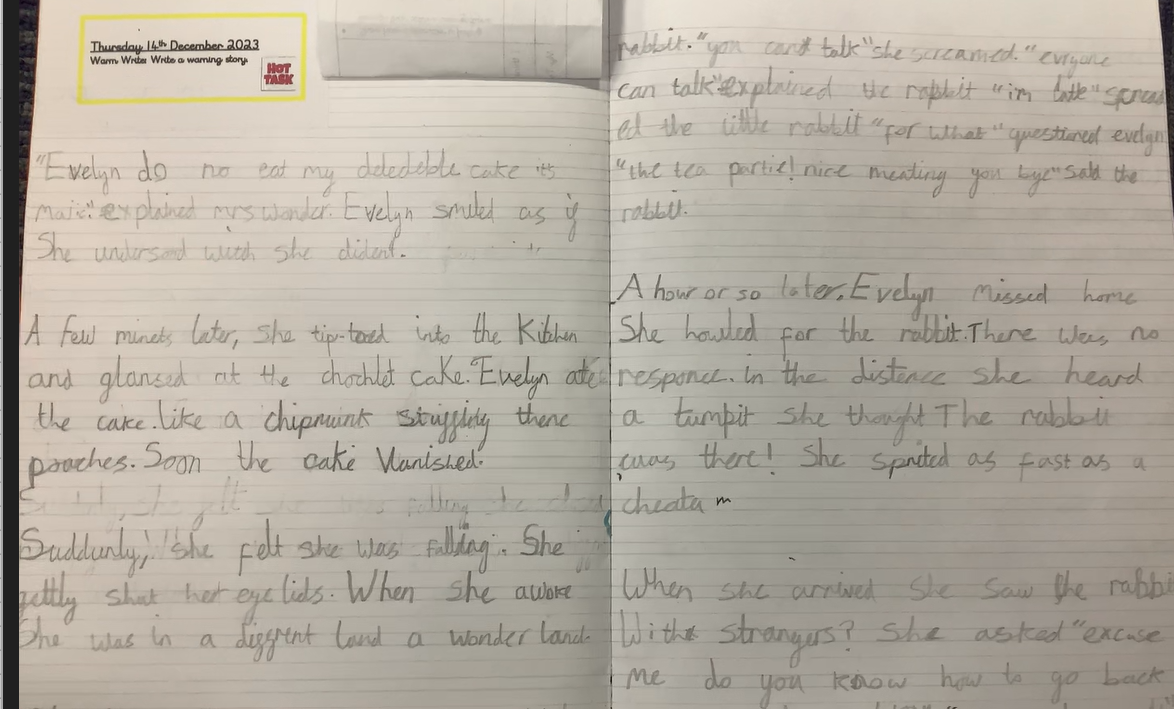 Thursday 14th December 2023
Warm Write: Write a warning story.
HOT
TASK
"Evelyn do no eat my deledeble cake its
majic" explained mrs wonder. Evelyn smiled as if
She undersood witch she dident.
A few minets later, She tip-toed into the Kitchen
and glansed at the chochlet cake. Evelyn ate
the cake. like a chipmunk stuffing there
pooches. Soon the cake Vanished.
Suddunly, she felt she was falling. She
shut her eye lids. When she awoke
She was in a diffrent land a wonder land.
rabbit. "you cant talk" she screamed. "evryone
can talk" explained the rabbit "im late" spread
ed the little rabbit "for what" questioned evelyn
"the tea partie! nice meating you bye" Said the
rabbit.
A hour or so later. Evelyn missed home
She howled for the rabbit. There was no
responce. in the distence she heard
a tumpit she thought The rabbit
was there! She sprited as fast as a
cheata
When she arrived she saw the rabbi
With strangers? She asked "excuse
me do you know how to go back